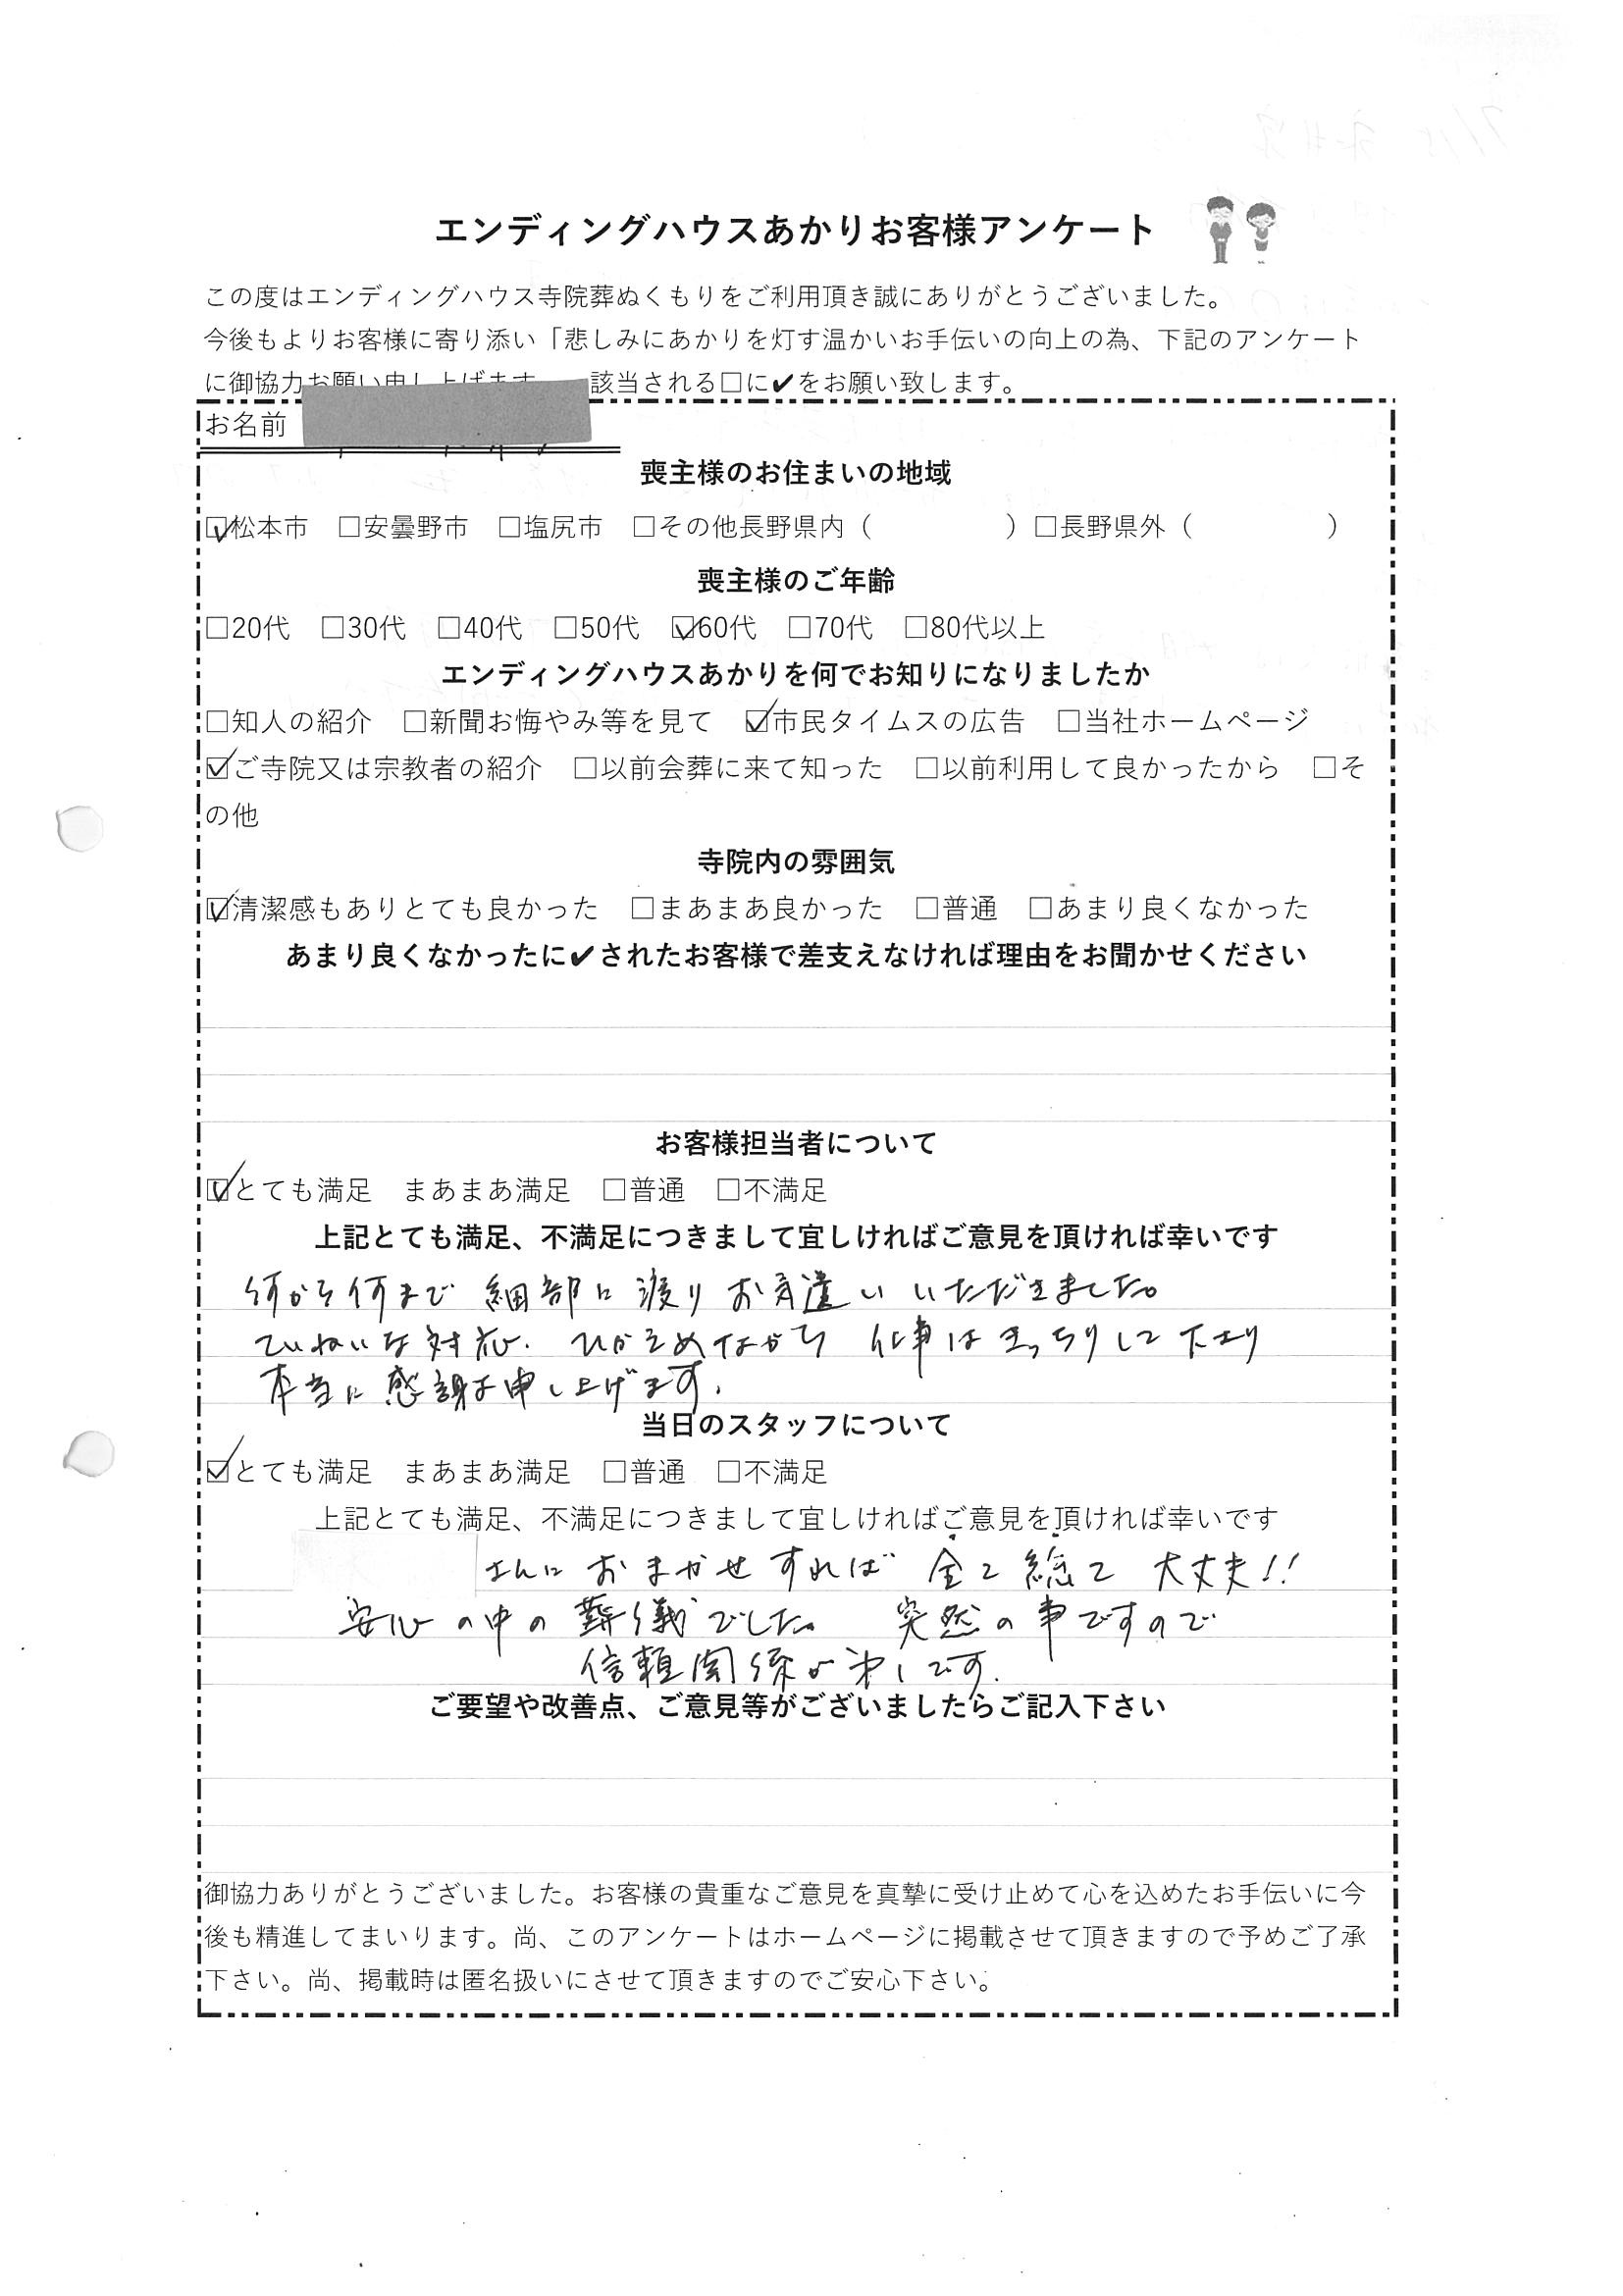 エンディングハウスあかりお客様アンケート
この度はエンディングハウス寺院葬ぬくもりをご利用頂き誠にありがとうございました。
今後もよりお客様に寄り添い「悲しみにあかりを灯す温かいお手伝いの向上の為、下記のアンケート
に御協力お願い申し上げます 該当される□に✔をお願い致します。
お名前
喪主様のお住まいの地域
☑松本市 □安曇野市 □塩尻市 □その他長野県内（ ）□長野県外（ ）
喪主様のご年齢
□20代 □30代 □40代 □50代 ☑60代 □70代 □80代以上
エンディングハウスあかりを何でお知りになりましたか
□知人の紹介 □新聞お悔やみ等を見て ☑市民タイムスの広告 □当社ホームページ
☑ご寺院又は宗教者の紹介 □以前会葬に来て知った □以前利用して良かったから □そ
の他
寺院内の雰囲気
☑清潔感もありとても良かった □まあまあ良かった □普通 □あまり良くなかった
あまり良くなかったに✔されたお客様で差支えなければ理由をお聞かせください
お客様担当者について
☑とても満足 まあまあ満足 □普通 □不満足
上記とても満足、不満足につきまして宜しければご意見を頂ければ幸いです
何から何まで 細部に渡り お気遣い いただきました。
ていねいな対応. ひかえめながら 仕事はきっちりして下さり
本当に感謝を申し上げます.
当日のスタッフについて
☑とても満足 まあまあ満足 □普通 □不満足
上記とても満足、不満足につきまして宜しければご意見を頂ければ幸いです
さんに おまかせすれば 全て総て 大丈夫!!
安心の中の葬儀でした。 突然の事ですので
信頼関係が です.
ご要望や改善点、ご意見等がございましたらご記入下さい
御協力ありがとうございました。お客様の貴重なご意見を真摯に受け止めて心を込めたお手伝いに今
後も精進してまいります。尚、このアンケートはホームページに掲載させて頂きますので予めご了承
下さい。尚、掲載時は匿名扱いにさせて頂きますのでご安心下さい。